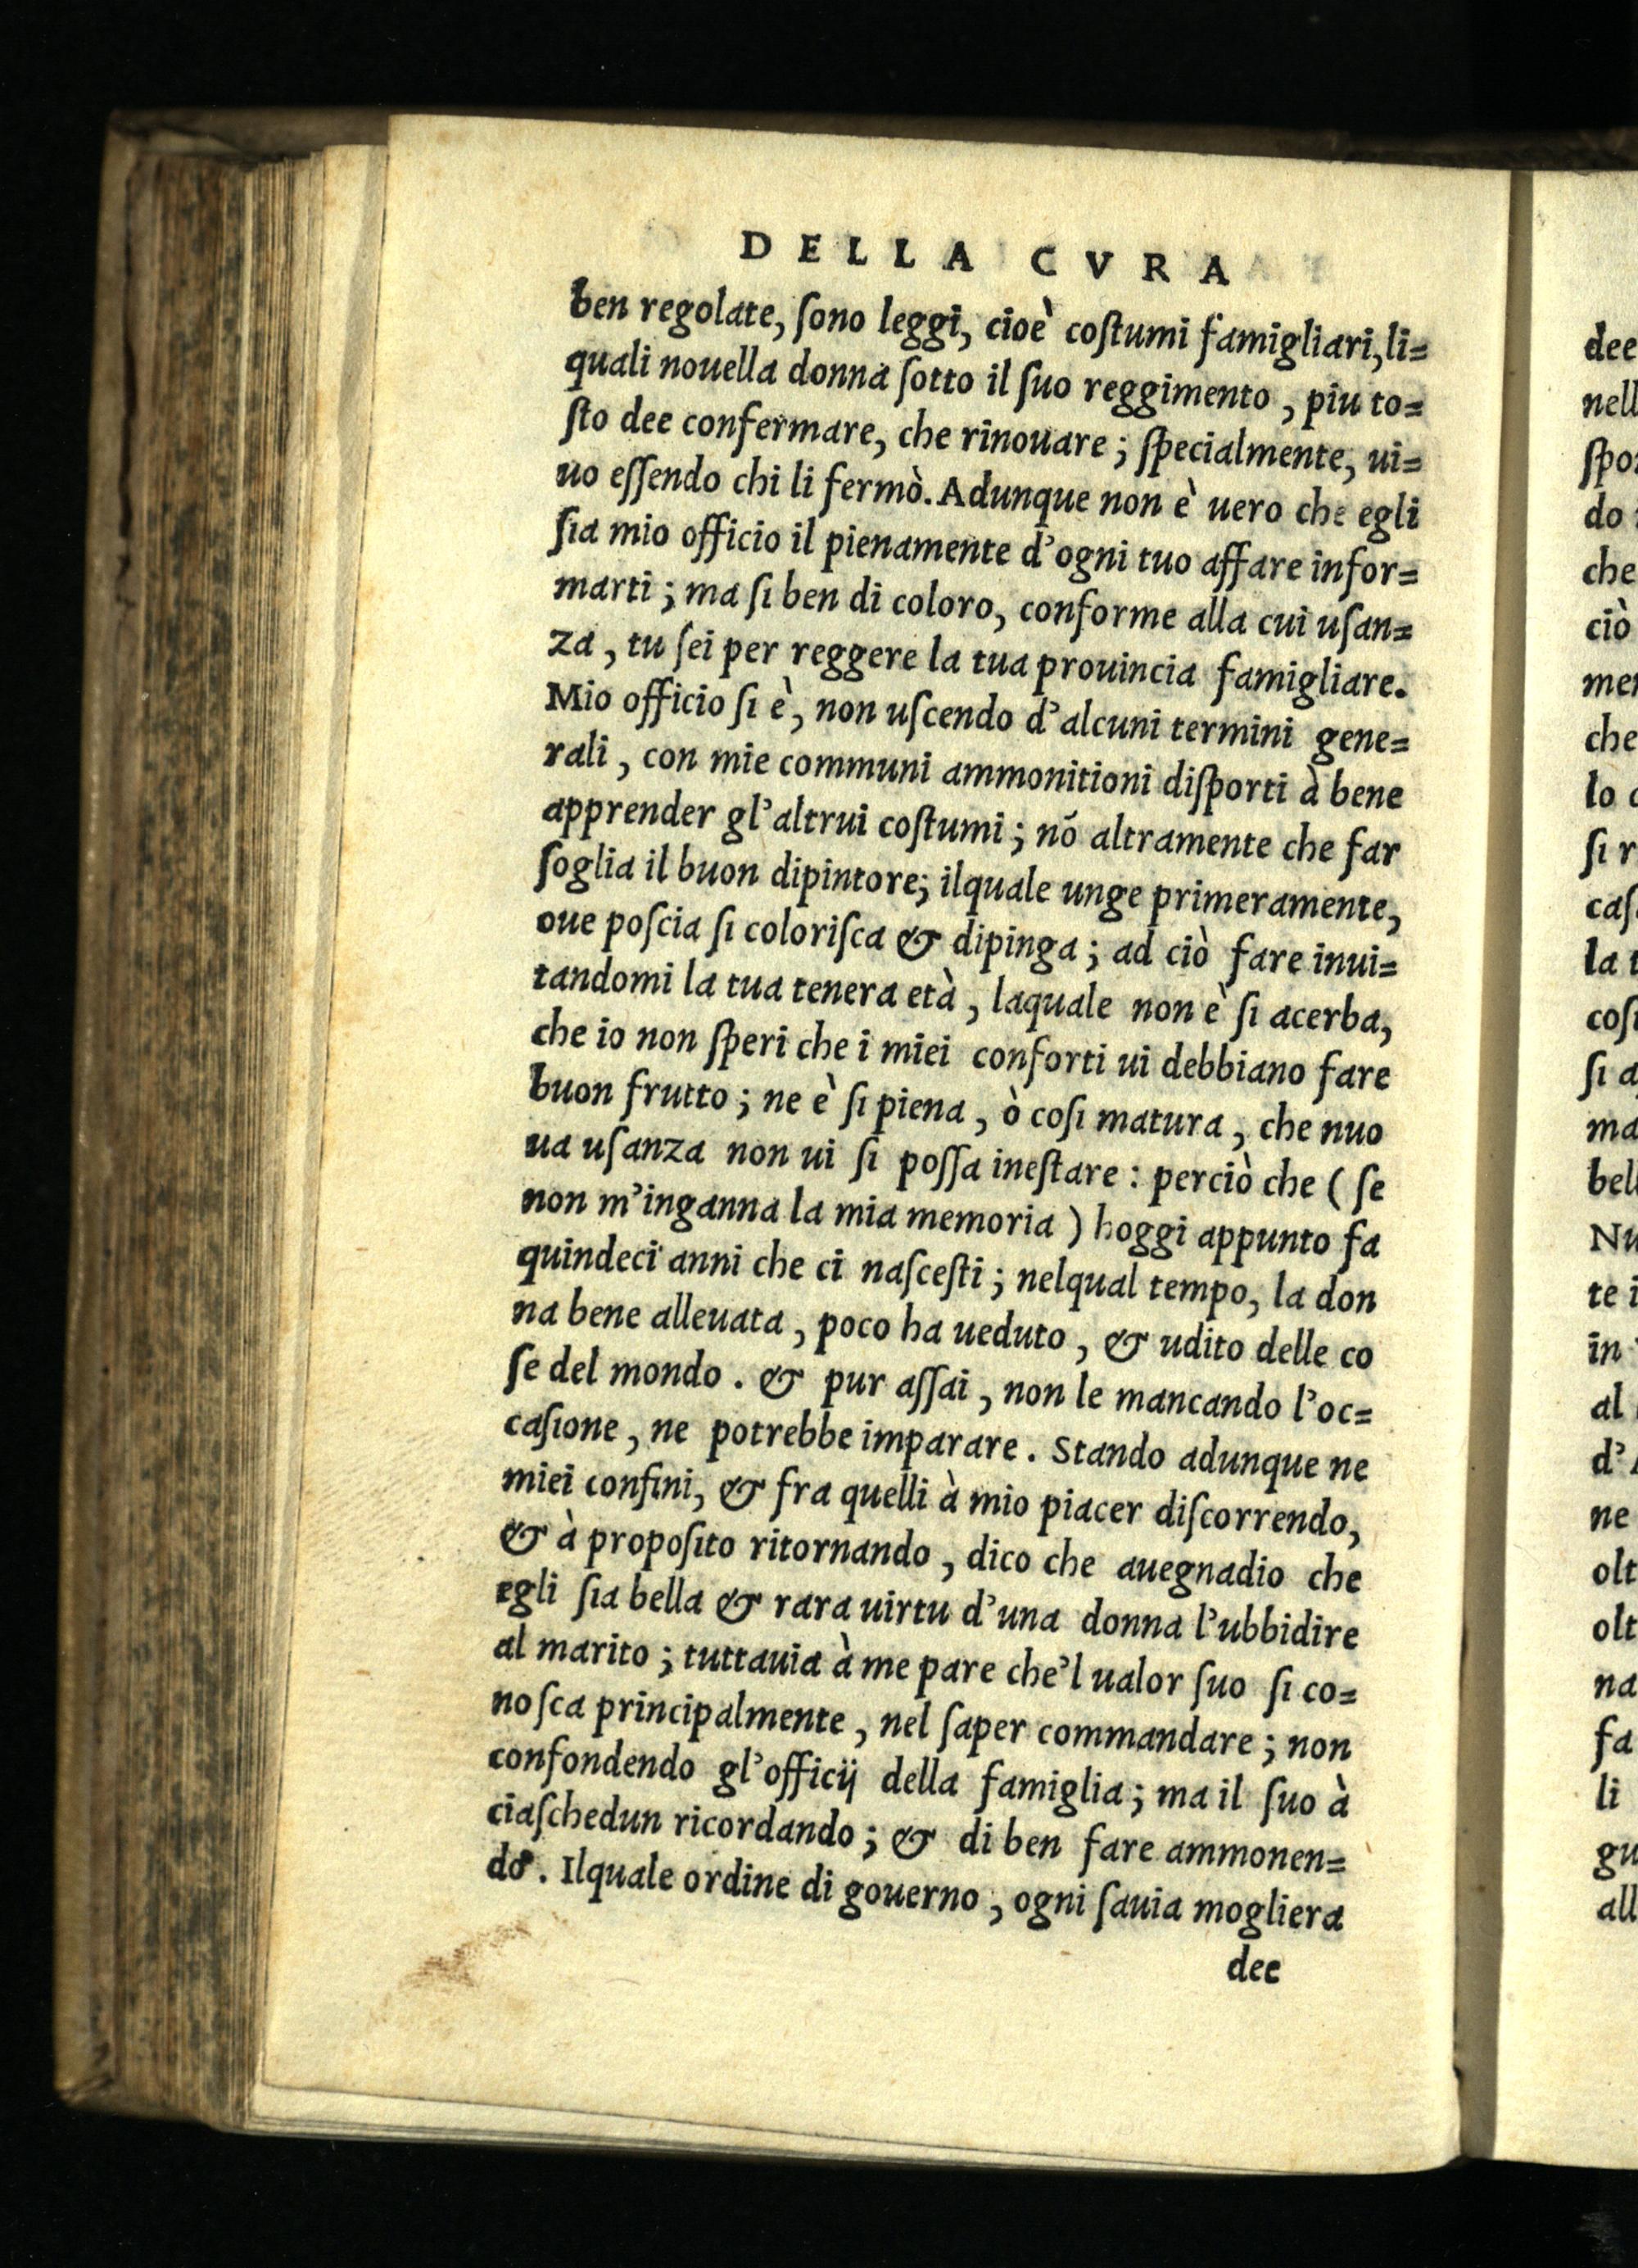 DELLA CVRA
ben regolate, ſono leggi, cioè coſtumi famigliari, li=
quali nouella donna ſotto il ſuo reggimento, piu to=
ſto dee confermare, che rinouare; ſpecialmente, ui=
uo eſſendo chi li fermò. Adunque non è uero che egli
ſia mio officio il pienamente d'ogni tuo affare infor=
marti; ma ſi ben di coloro, conforme alla cui uſan=
za, tu ſei per reggere la tua prouincia famigliare.
Mio officio ſi è, non uſcendo d'alcuni termini gene=
rali, con mie communi ammonitioni diſporti à bene
apprender gl'altrui coſtumi; nō altramente che far
ſoglia il buon dipintore; ilquale unge primeramente,
oue poſcia ſi coloriſca & dipinga; ad ciò fare inui=
tandomi la tua tenera età, laquale non è ſi acerba,
che io non ſperi che i miei conforti ui debbiano fare
buon frutto; ne è ſi piena, ò coſi matura, che nuo
ua uſanza non ui ſi poſſa ineſtare: perciò che (ſe
non m'inganna la mia memoria) hoggi appunto fa
quindeci anni che ci naſceſti; nelqual tempo, la don
na bene alleuata, poco ha ueduto, & udito delle co
ſe del mondo. & pur aſſai, non le mancando l'oc=
caſione, ne potrebbe imparare. Stando adunque ne
miei confini, & fra quelli à mio piacer diſcorrendo,
& à propoſito ritornando, dico che auegnadio che
egli ſia bella & rara uirtu d'una donna l'ubbidire
al marito; tuttauia à me pare che'l ualor ſuo ſi co=
noſca principalmente, nel ſaper commandare; non
confondendo gl'officij della famiglia; ma il ſuo à
ciaſchedun ricordando; & di ben fare ammonen=
do. Ilquale ordine di gouerno, ogni ſauia mogliera
dee
dee
nell
ſpo
do
che
ciò
me
che
lo
ſi r
caſ
la t
coſi
ſi a
ma
bel
Nu
te i
in
al
d'
ne
olt
olt
na
fa
li
gu
all